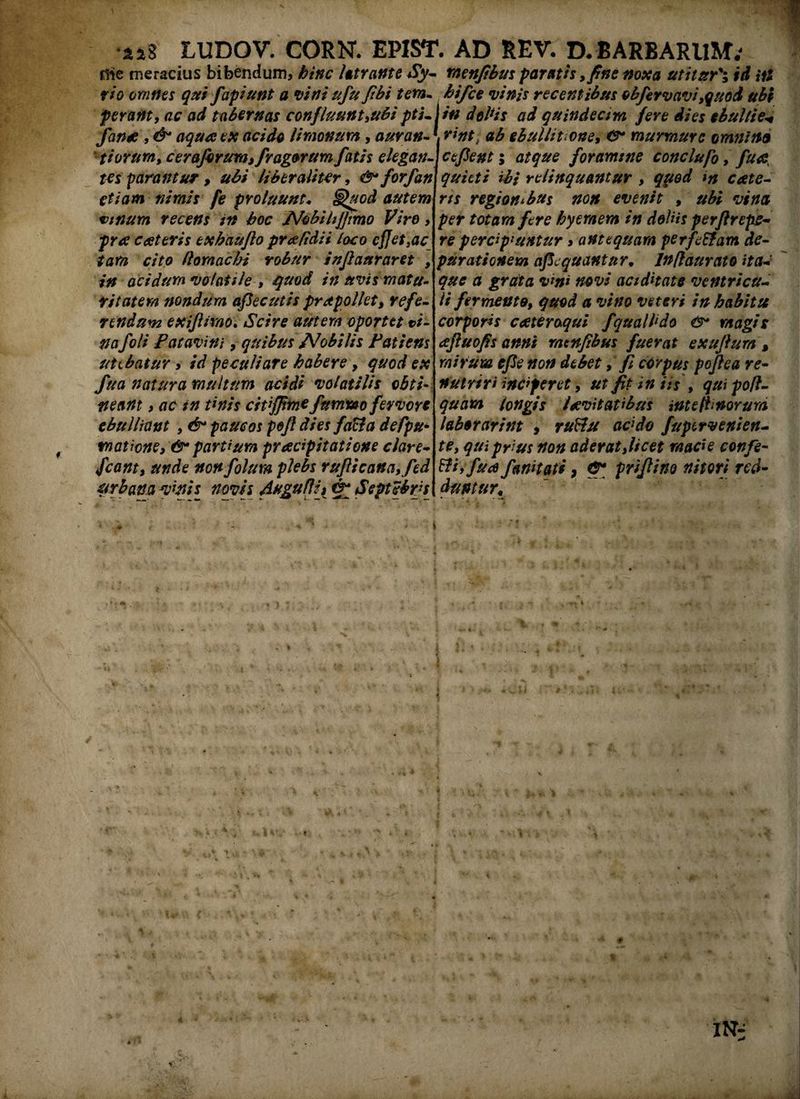 228 LUDOV. CORN. EPIST. AD REV. D. BARBARUM;
me meracius bibendum, hinc latrante Sy-
rio omnes qui sapiunt a vini usu sibi tem-
perant, ac ad tabernas confluunt, ubi pti-
sanæ, & aquæ ex acido limonum, auran-
tiorum, ceraforum, fragorum satis elegan-
tes parantur, ubi liberaliter, & forsan
etiam nimis se proluunt. Quod autem
vinum recens in hoc Nobilissimo Viro,
præ cæteris exhausto præsidii loco esset, ac
tam cito stomachi robur instauraret,
in acidum volatile, quod in uvis matu-
ritatem nondum assecutis præpollet, refe-
rendum existimo. Scire autem oportet vi-
na soli Patavini, quibus Nobilis Patiens
utebatur, id peculiare habere, quod ex
sua natura multum acidi volatilis obti-
neant, ac in tinis citissime summo fervore
ebulliant, & paucos post dies facta despu-
matione, & partium præcipitatione clare-
scant, unde non solum plebs rusticana, sed
urbana vinis novis Augusti, & Septēbris
mensibus paratis, sine noxa utitur; id in
hisce vinis recentibus observavi, quod ubi
in doliis ad quindecim fere dies ebullie-
rint, ab ebullitione, & murmure omnino
cessent; atque foramine concluso, suæ
quieti ibi relinquantur, quod in cæte-
ris regionibus non evenit, ubi vina
per totam fere hyemem in doliis perstrepe-
re percipiuntur, antequam perfectam de-
purationem assequantur. Instaurato ita-
que a grata vini novi aciditate ventricu-
li fermento, quod a vino veteri in habitu
corporis cæteroqui squallido & magis
æstuosis anni mensibus fuerat exustum,
mirum esse non debet, si corpus postea re-
nutriri inciperet, ut fit in iis, qui post-
quam longis lævitatibus intestinorum
laborarint, ructu acido supervenien-
te, qui prius non aderat, licet macie confe-
cti, suæ sanitati, & pristino nitori red-
duntur.
IN-